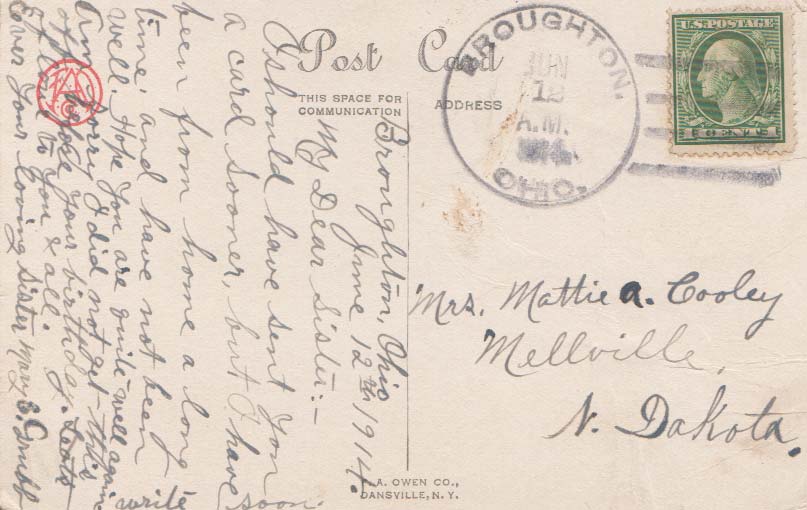 Post Card
THIS SPACE FOR
COMMUNICATION
ADDRESS
BROUGHTON,
JUN
12
A.M.
OHIO.
U.S. POSTAGE
1 CENT 1
Broughton, Ohio
June 12th 1914.
My Dear Sister:-
I should have sent you
a card sooner, but I have
been from home a long
time, and have not been
well. Hope you are quite well again
Am Sorry I did not get this
off before your birthday.
to you & all.
Ever your loving sister Mary E.
write
soon.
Mrs. Mattie A. Cooley
Mellville,
N. Dakota.
F.A. OWEN CO.,
DANSVILLE, N.Y.